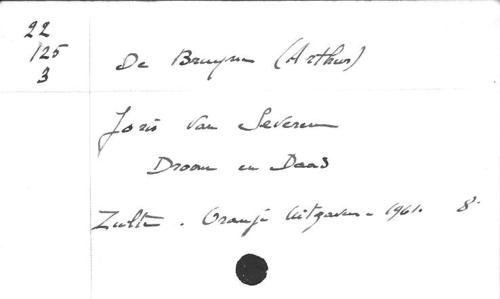 22
125
3
De Bruyne (Arthur)
Joris Van Severen
Droom en Daad
Zulte. Oranje Uitgaven - 1961. 8°